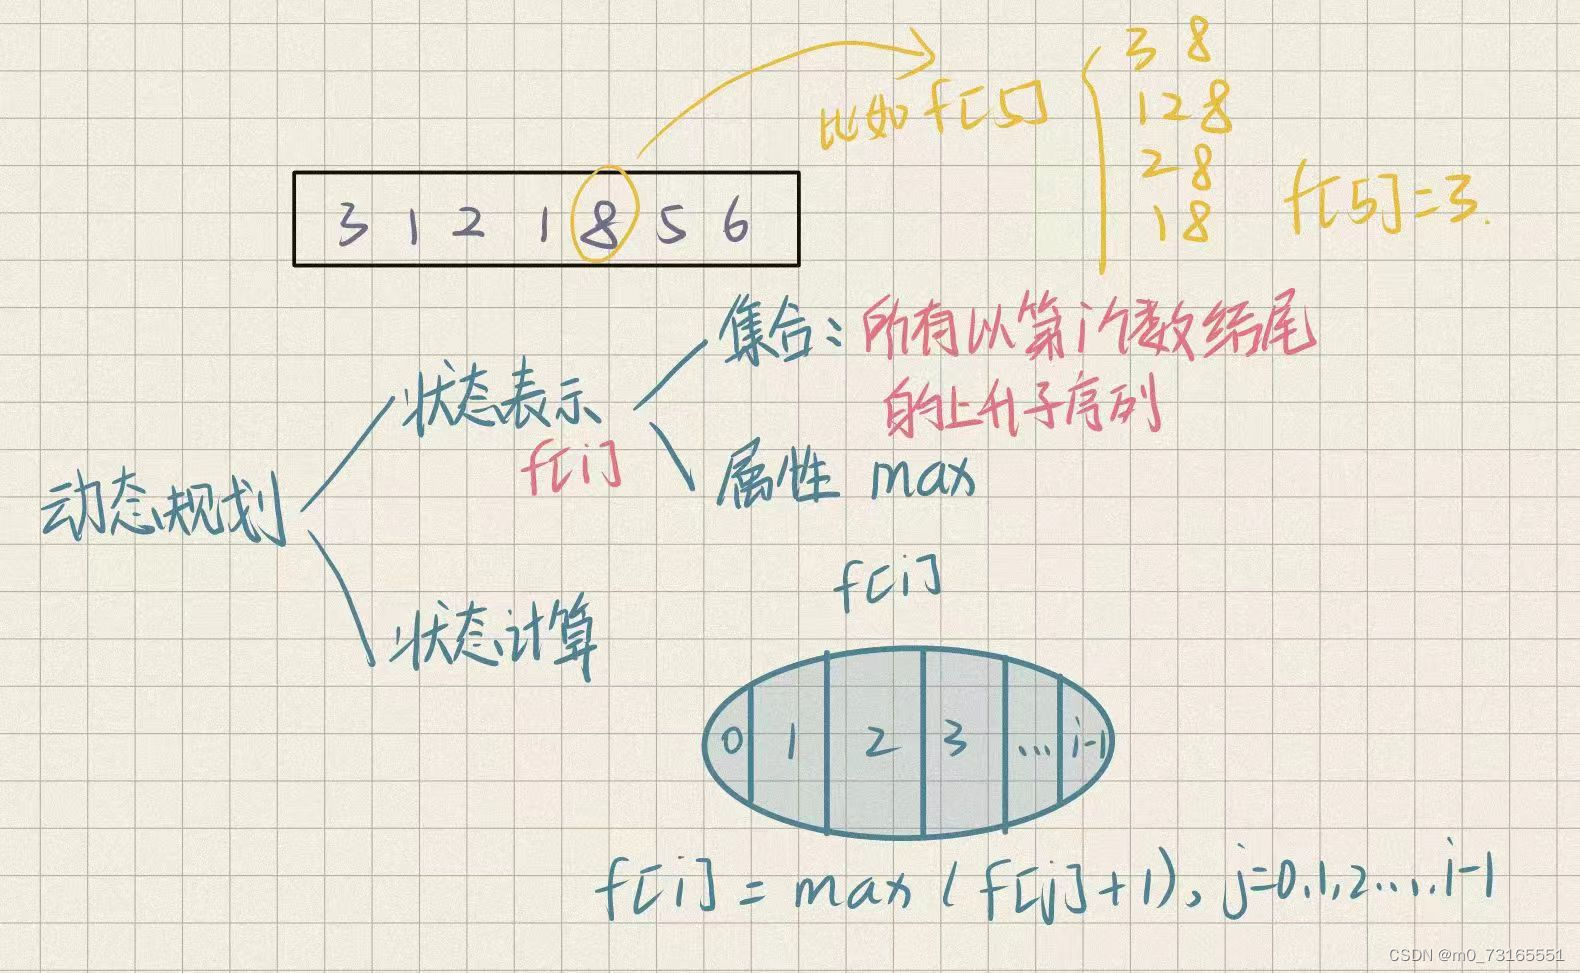 3 8
比如 f[5]
1 2 8
2 8
1 8
f[5]=3.
3 1 2 1 8 5 6
集合：所有以第i个数结尾
的上升子序列
状态表示
f[i]
属性 max
动态规划
状态计算
f[i]
0 1 2 3 ... i-1
f[i] = max (f[j]+1), j=0.1.2...,.i-1
CSDN @m0_73165551